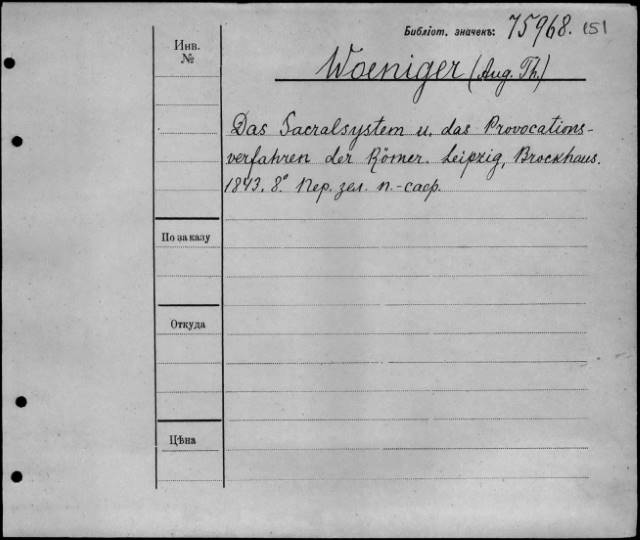 Библіот. значекъ: 75968. (5)
Инв.
№
Woeniger (Aug. Th.)
Das Sacralsystem u. das Provocations-
verfahren der Römer. Leipzig, Brockhaus.
1843. 8.° Пер. зел. п.-саф.
По заказу
Откуда
Цѣна